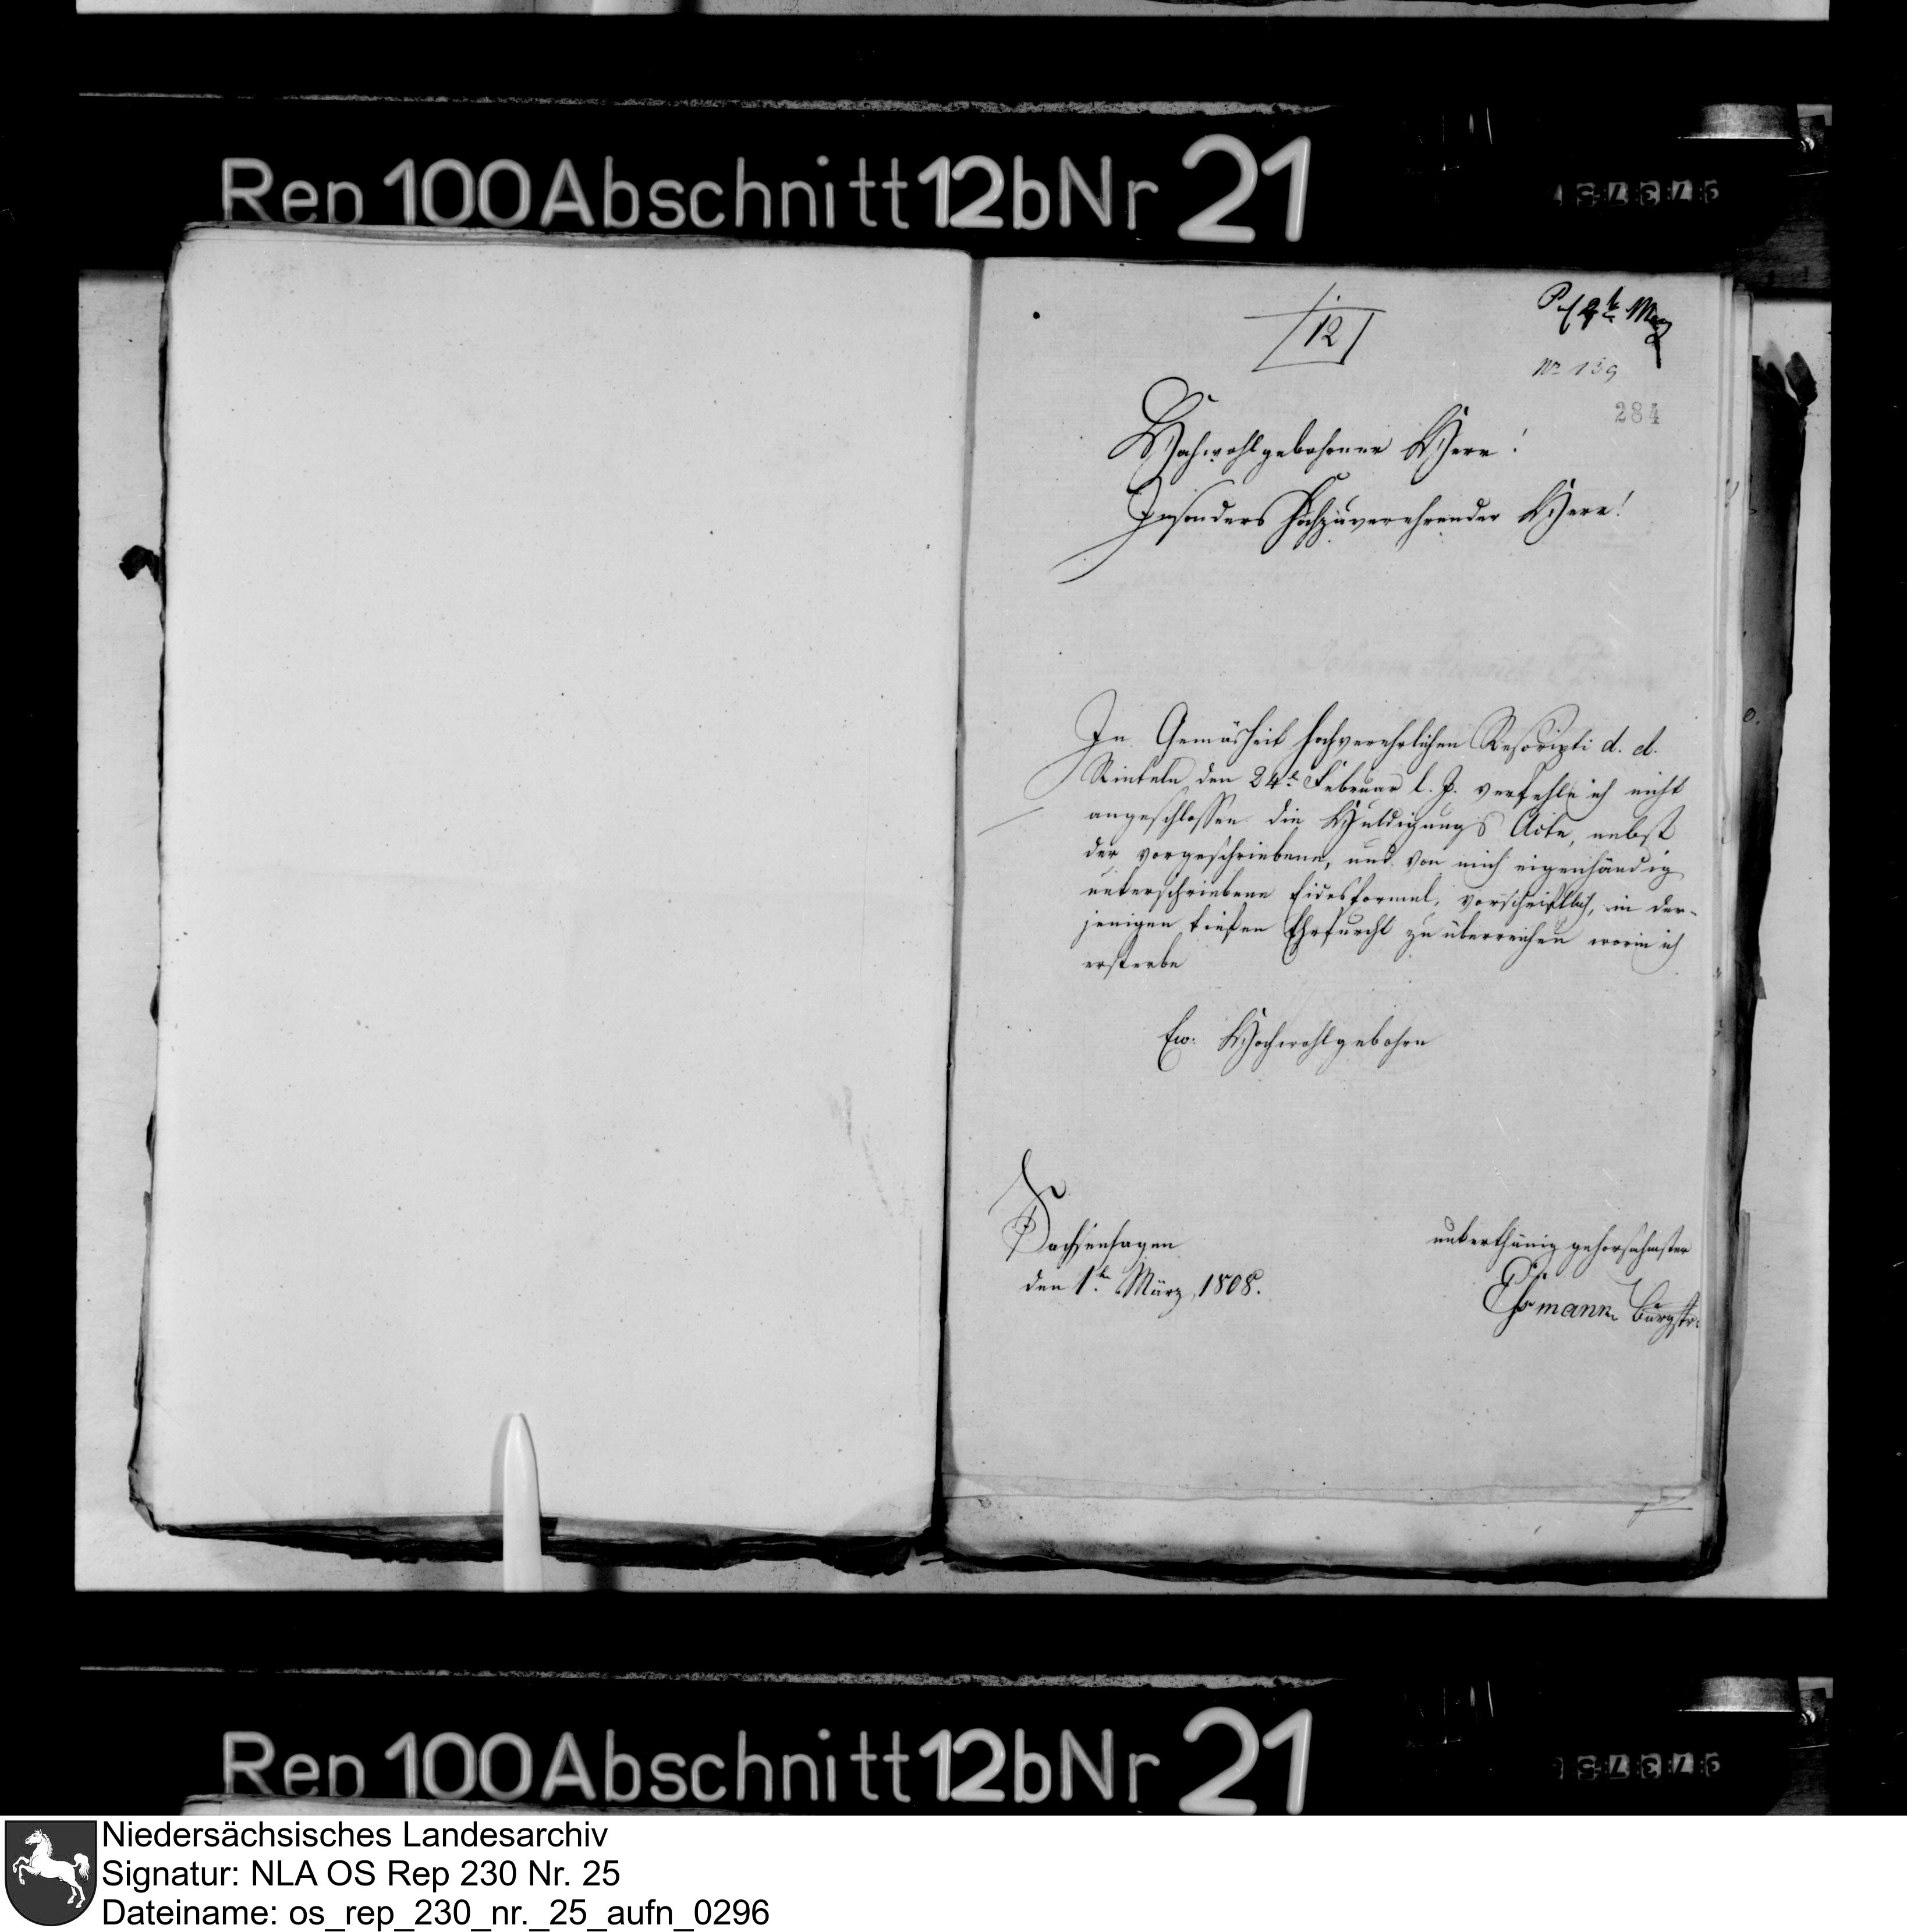 Rep 100 Abschnitt 12b Nr 21
12
Pr. 2t März
No 139
284
Hochwohlgebohrner Herr!
Insonders Hochzuverehrender Herr!
In Gemäsheit hochverehrlichen Rescripti d. d.
Rinteln den 24t Februar l. J. verfehle ich nicht
angeschlossen die Huldigungs Acte, nebst
der vorgeschriebene, und von mich eigenhändig
unterschriebene Eidesformel, vorschriftlich, in der-
jenigen tiefen Ehrfurcht zu überreichen worin ich
ersterbe
Ew. Hochwohlgebohrn
Sachsenhagen
den 1ten März 1808.
unterthänig gehorsahmster
Burgstr.
Rep 100 Abschnitt 12b Nr 21
Niedersächsisches Landesarchiv
Signatur: NLA OS Rep 230 Nr. 25
Dateiname: os_rep_230_nr._25_aufn_0296